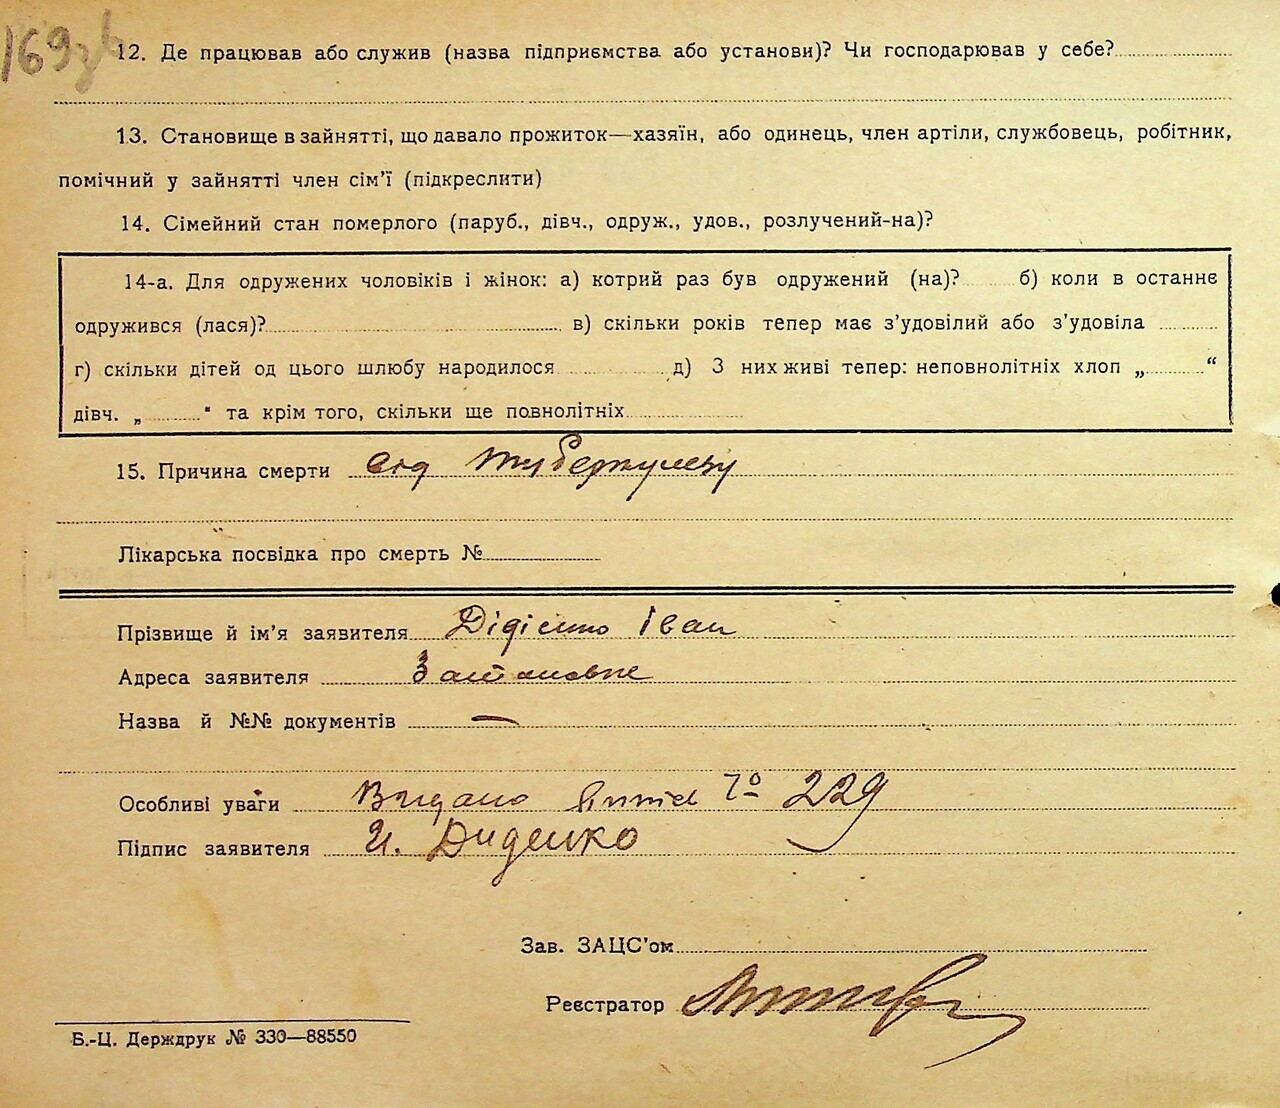 169зв
12. Де працював або служив (назва підприємства або установи)? Чи господарював у себе?
13. Становище в зайнятті, що давало прожиток—хазяїн, або одинець, член артіли, службовець, робітник,
помічний у зайнятті член сім'ї (підкреслити)
14. Сімейний стан померлого (паруб., дівч., одруж., удов., розлучений-на)?
14-а. Для одружених чоловіків і жінок: а) котрий раз був одружений (на)? б) коли в останнє
одружився (лася)? в) скільки років тепер має з'удовілий або з'удовіла
г) скільки дітей од цього шлюбу народилося д) З них живі тепер: неповнолітніх хлоп „ “
дівч. „ “ та крім того, скільки ще повнолітніх
15. Причина смерти від туберкульозу
Лікарська посвідка про смерть №
Прізвище й ім'я заявителя Дідієнко Іван
Адреса заявителя
Назва й №№ документів —
Особливі уваги Видано № 229
Підпис заявителя И. Диденко
Зав. ЗАЦС'ом
Реєстратор
Б.-Ц. Держдрук № 330—88550